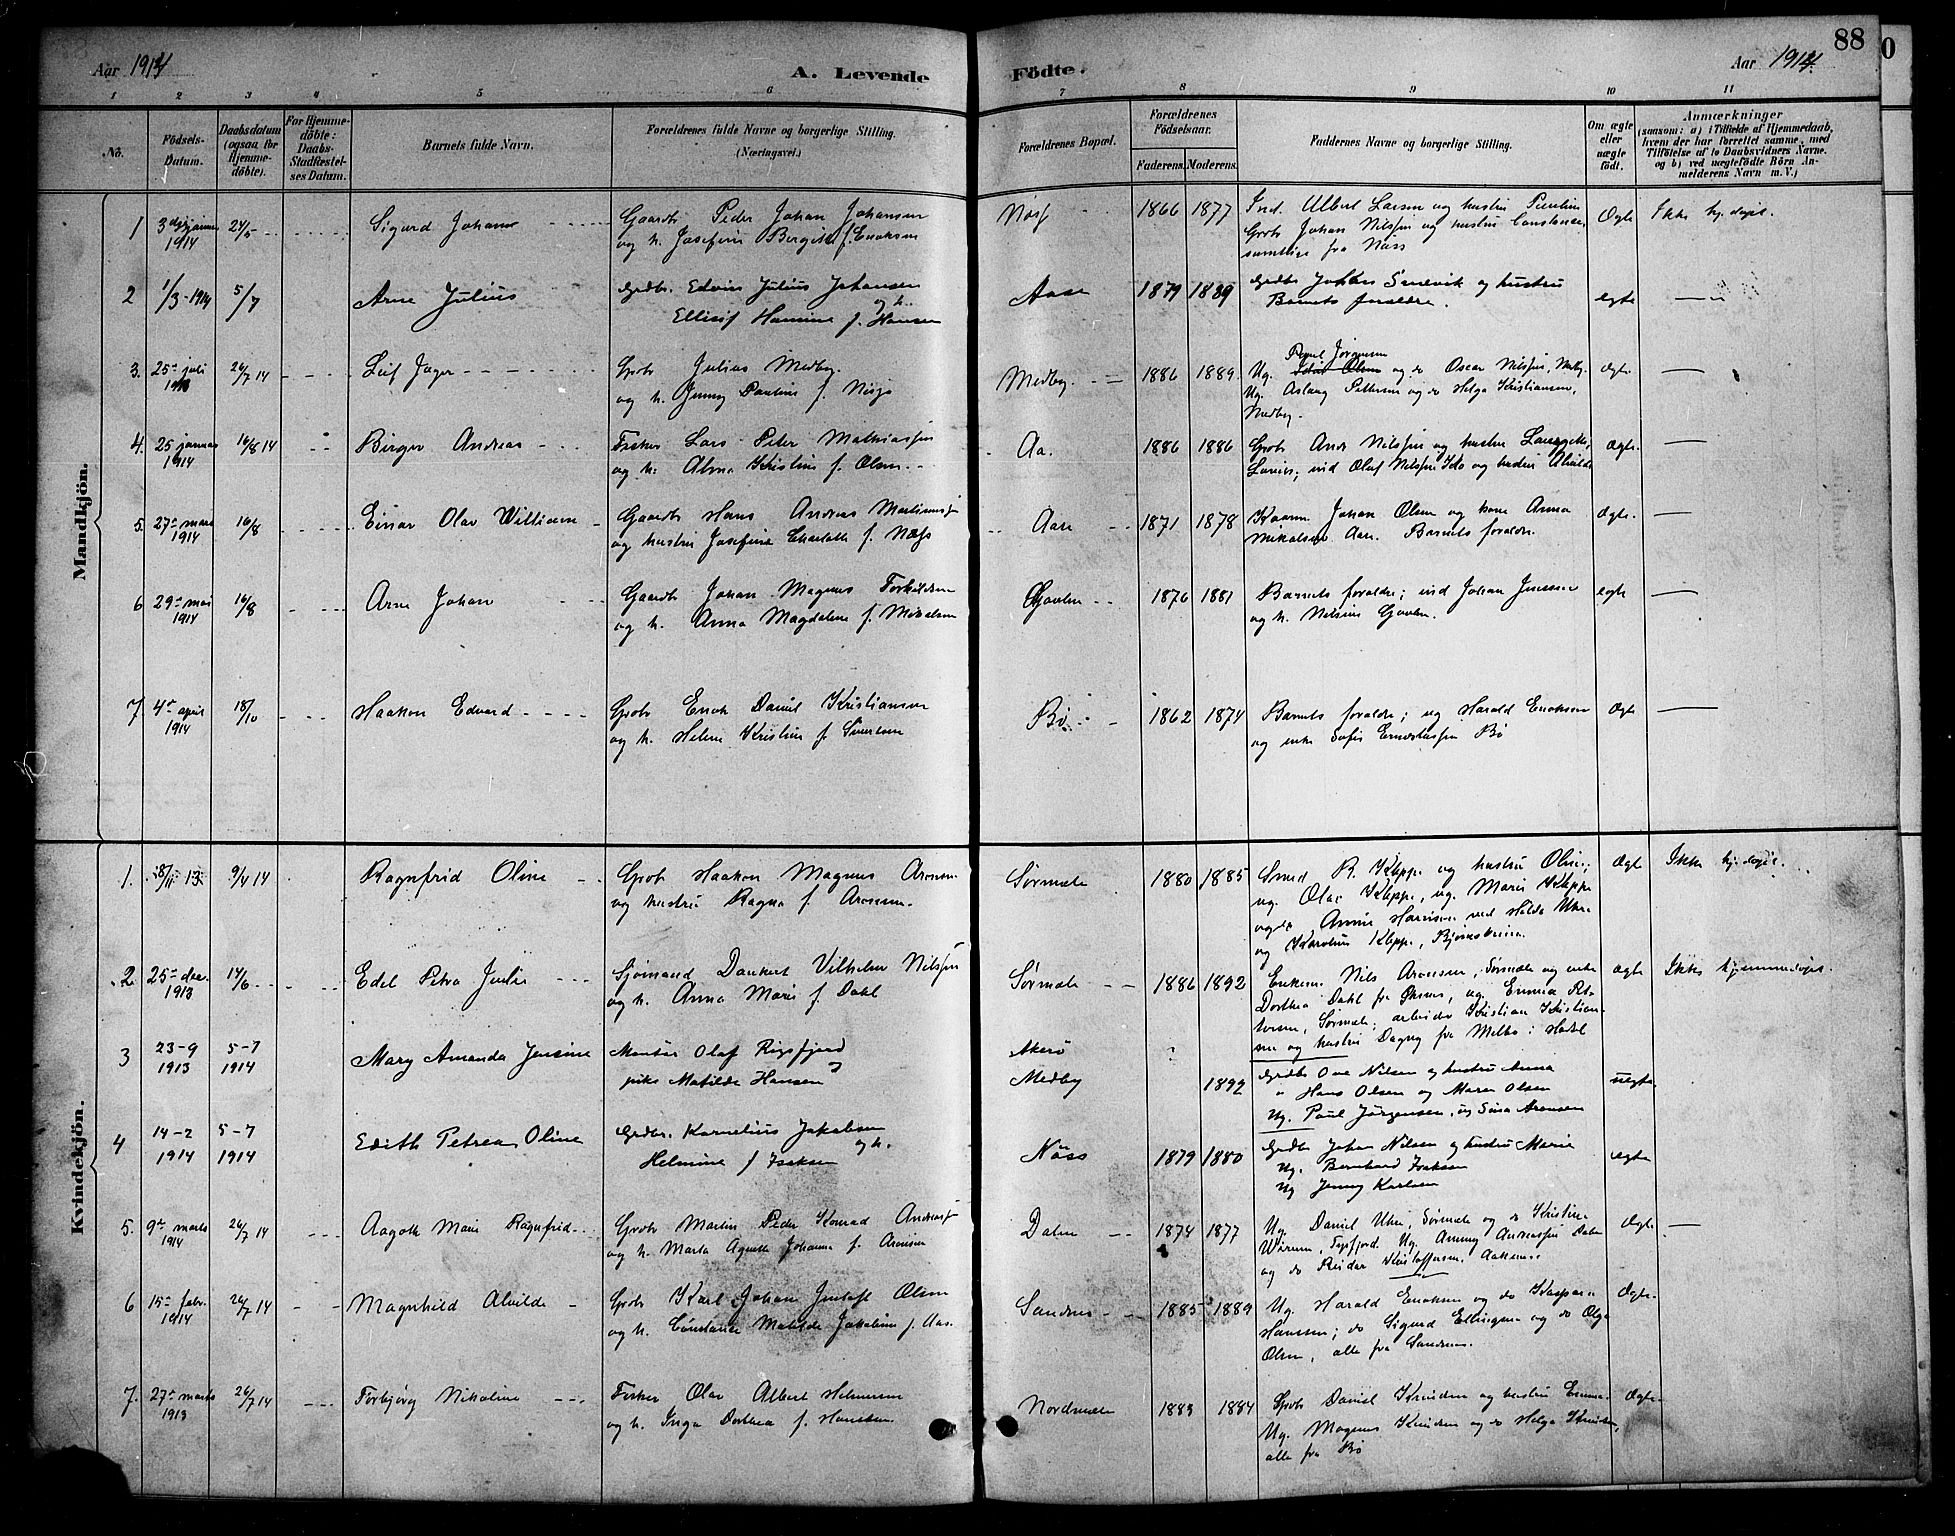 88
Aar 1914
A. Levende
Födte.
Aar 1914.
1 2 3 4 5 6 7 8 9 10 11
No.
Födsels-Datum.
Daabsdatum (ogsaa for Hjemmedöbte).
For Hjemmedöbte: Daabs-Stadfæstelses Datum.
Barnets fulde Navn.
Forældrenes fulde Navne og borgerlige Stilling. (Næringsvei.)
Forældrenes Bopæl.
Forældrenes Födselsaar.
Faderens. Moderens.
Faddernes Navne og borgerlige Stilling.
Om ægte eller uægte født.
Anmærkninger
(saasom: a) i Tilfælde af Hjemmedaab, hvem der har forrettet samme, med Tilföielse af to Daabsvidners Navne. og b) ved uægtefödte Börn Anmelderens Navn m. V.)
Mandkjön.
1 1914 24/5 Sigurd Johan Gaardb Peder Johan Johansen
og h. Josefine Bergitte f. Enoksen
Næss 1866 1877 Ind. Albert Larsen og hustru Pauline
Grdb Johan Nilssen og hustru Constance,
samtlige fra Næss
Ægte Ikke hj. døpt.
2 1/3-1914 5/7 Arne Julius Grdbr. Edvin Julius Johansen
og h.
Ellisif Hansine f. Hansen
Aase 1879 1889 Grdbr Johan og hustru
Barnets forældre.
ægte
3. 25de juli 26/7 14 Leif Jager Grdb Julius Medby
og h. Jenny Pauline f.
Medby. 1886 1889. Paul Jørgensen
Ug. Olsen og do Oscar Nilssen, Medby
Ug. Aslaug Pettersen og do Helga Kristiansen,
Medby.
ægte
4. 25 januar 1914 16/8 14 Birger Andreas Fisker Lars Peter Mathiassen
og h. Alma Kristine f. Olsen
Aa. 1886 1886 Grdb Andr Nilssen og hustru
ind Olaf Nilssen og hustru Alvilde
Ægte.
5. 27de mars 1914 16/8 Einar Olav William Gaardb Hans Andreas
og hustru Josefine Charlotte f. Næss
Aase 1871 1878 Kaarm. Johan Olsen og kone Anna
Mikalsen Aase. Barnets foraldre.
Ægte.
6 29de mai 1914 16/8 Arne Johan Gaardb Johan Magnus Torkildsen
og h. Anna Magdalene f. Mikalsen
1876 1881 Barnets foraldre; ind Johan Jenssen
og h.
ægte
7. 4de april 1914 18/10 Haakon Edvard Grdb Enok Daniel Kristiansen
og h. Helene Kristine f. Sivertsen
Bø 1862 1874 Barnets foraldre; ug Harald Enoksen
og enke Sofie Bø
Ægte
Kvindekjön.
1. 18/11 13 9/4 14 Ragnfrid Oline Grdb Haakon Magnus Aronsen
og hustru Ragna f. Aronsen.
Sørmæle 1880 1885 Smed R. Kleppe og hustru Oline;
ug. Olav Kleppe, ug. Marie Kleppe
og Karoline Kleppe,
Ægte Ikke hj. døpt.
2. 25de dec. 1913 14/6 Edel Petra Julie Sjømand Dankert Vilhelm Nilssen
og h. Anna Marie f. Dahl
Sørmæle 1886 1892 Enkem. Nils Aronsen, Sørmæle og enke
Dorthea Dahl fra Øksnes, ug. Emma
Sørmæle; arbeider Kristian Kristian-
sen og hustru Dagny fra Melbo i Hadsel
ægte Ikke hjemmedøpt.
3 23-9 1913 5-7 1914 Mary Amanda Jensine Montør Olaf
pike Matilde Hansen
Akerø
Medby
1892 Grdbr Ove Nilsen og hustru Anna
" Hans Olsen og Maren Olsen
Ug. Paul Jørgensen, ug Aronsen
uegte
4 14-2 1914 5-7 1914 Edith Petrea Oline Grdbr. Kornelius Jakobsen
og h.
Helmine f Isaksen
Næss 1879 1880 Grdbr Johan Nilsen og hustru Marie
Ug. Bernhard Isaksen
Ug Jenny Karlsen
egte
5. 9de marts 1914 26/7 14 Aagoth Marie Ragnfrid Grdb Martin Peder Konrad
og h. Marta Agnethe Johanna f. Aronsen
Dalen 1874 1877 Ug. Daniel Uhre, Sørmæle og do Kristine
Ug. Anny Andreassen Dalen
og do Reidar Kristoffersen,
Ægte
6 15de febr. 1914 26/7 14 Magnhild Alvilde Grdb Karl Johan Gustaf Olsen
og h. Constance Matilde Jakobine f. Aas.
Sandnes 1885 1889 Ug. Harald Enoksen og do Kaspara
Hansen; do Sigurd Ellingsen og do Olga
Olsen, alle fra Sandnes.
Ægte
7. 27de marts 1913 26/7 14 Torbjørg Nikoline Fisker Olav Albert Helmersen
og h. Inga Dorthea f. Hansen.
Nordmæle 1883 1884 Grdb Daniel Knudsen og hustru Emma.
Ug. Magnus Knudsen og do Helga Knudsen,
alle fra Bø
Ægte